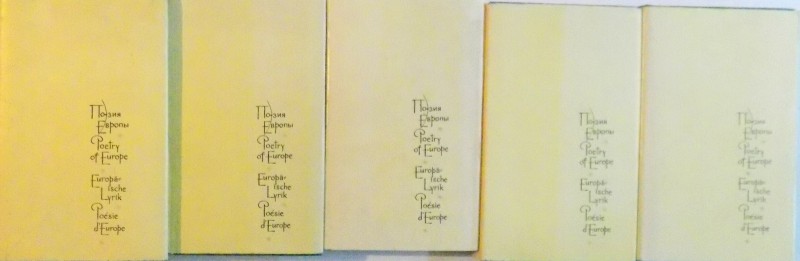 Поэзия
Европы
Poetry
of Europe
Europä-
ische
Lyrik
Poésie
d'Europe
Поэзия
Европы
Poetry
of Europe
Europä-
ische
Lyrik
Poésie
d'Europe
Поэзия
Европы
Poetry
of Europe
Europä-
ische
Lyrik
Poésie
d'Europe
Поэзия
Европы
Poetry
of Europe
Europä-
ische
Lyrik
Poésie
d'Europe
Поэзия
Европы
Poetry
of Europe
Europä-
ische
Lyrik
Poésie
d'Europe